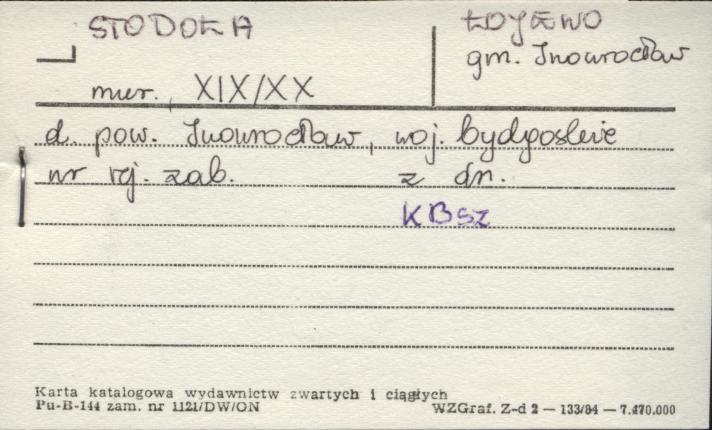 STODOŁA
ŁOJEWO
gm. Inowrocław
mur., XIX/XX
d. pow. Inowrocław, woj. bydgoskie
nr rej. zab. z dn.
KBSZ
Karta katalogowa wydawnictw zwartych i ciągłych
Pu-B-144 zam. nr 1121/DW/ON
WZGraf. Z-d 2 — 133/84 — 7.470.000